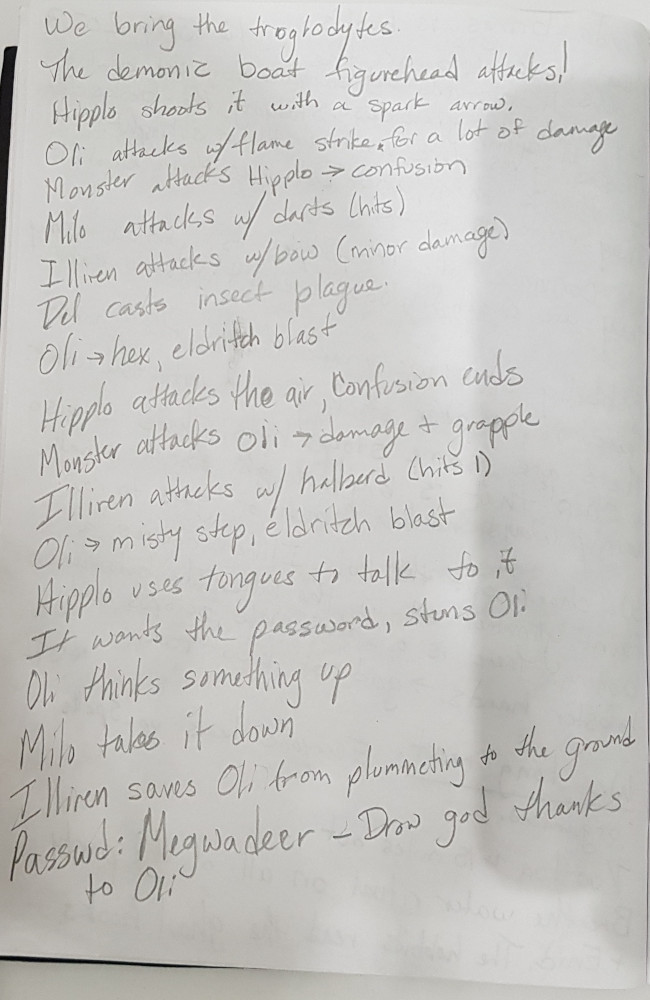 We bring the troglodytes.
The demonic boat figurehead attacks!
Hipplo shoots it with a spark arrow.
Oli attacks w/ flame strike, for a lot of damage
Monster attacks Hipplo → confusion
Milo attacks w/ darts (hits)
Illiren attacks w/ bow (minor damage)
Del casts insect plague.
Oli → hex, eldritch blast
Hipplo attacks the air, Confusion ends
Monster attacks Oli → damage + grapple
Illiren attacks w/ halberd (hits 1)
Oli → misty step, eldritch blast
Hipplo uses tongues to talk to it
It wants the password, stuns Oli
Oli thinks something up
Milo takes it down
Illiren saves Oli from plummeting to the ground
Passwd: Megwadeer - Drow god thanks
to Oli